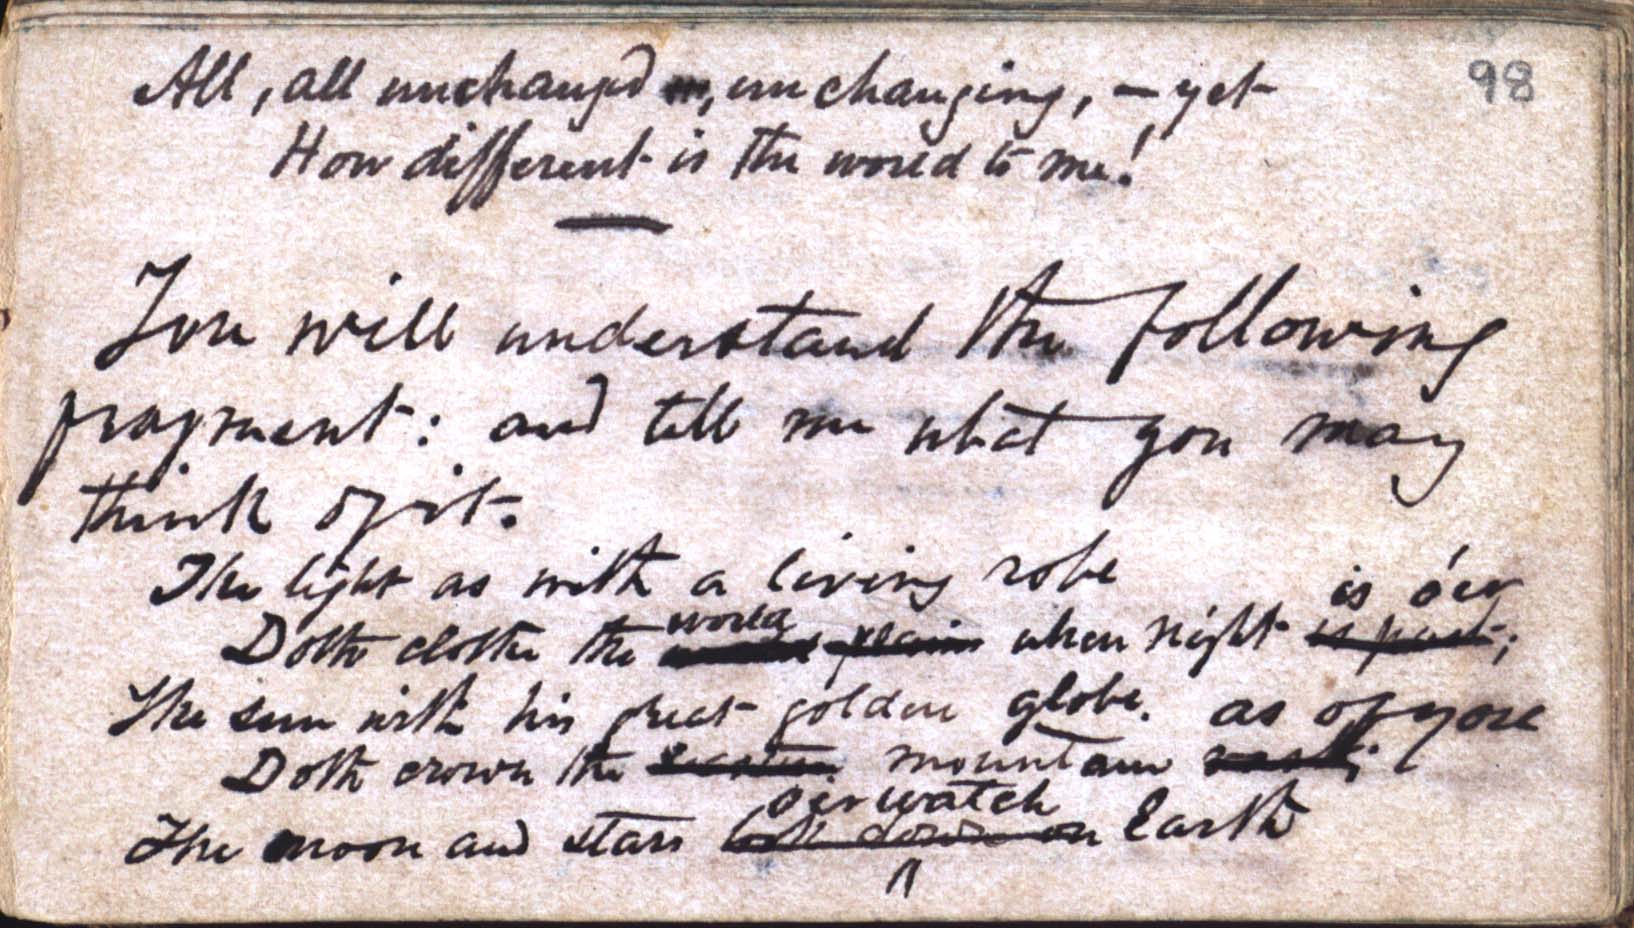 All, all unchanged, unchanging, – yet
98
How different is the world to me!
You will understand the following
fragment: and tell me what you may
think of it.
The light as with a living robe
is o'er
world
Doth clothe the plain when night is past;
The sun with his great golden globe. as of yore
Doth crown the eastern mountain
o'erwatch
The moon and stars look down on Earth